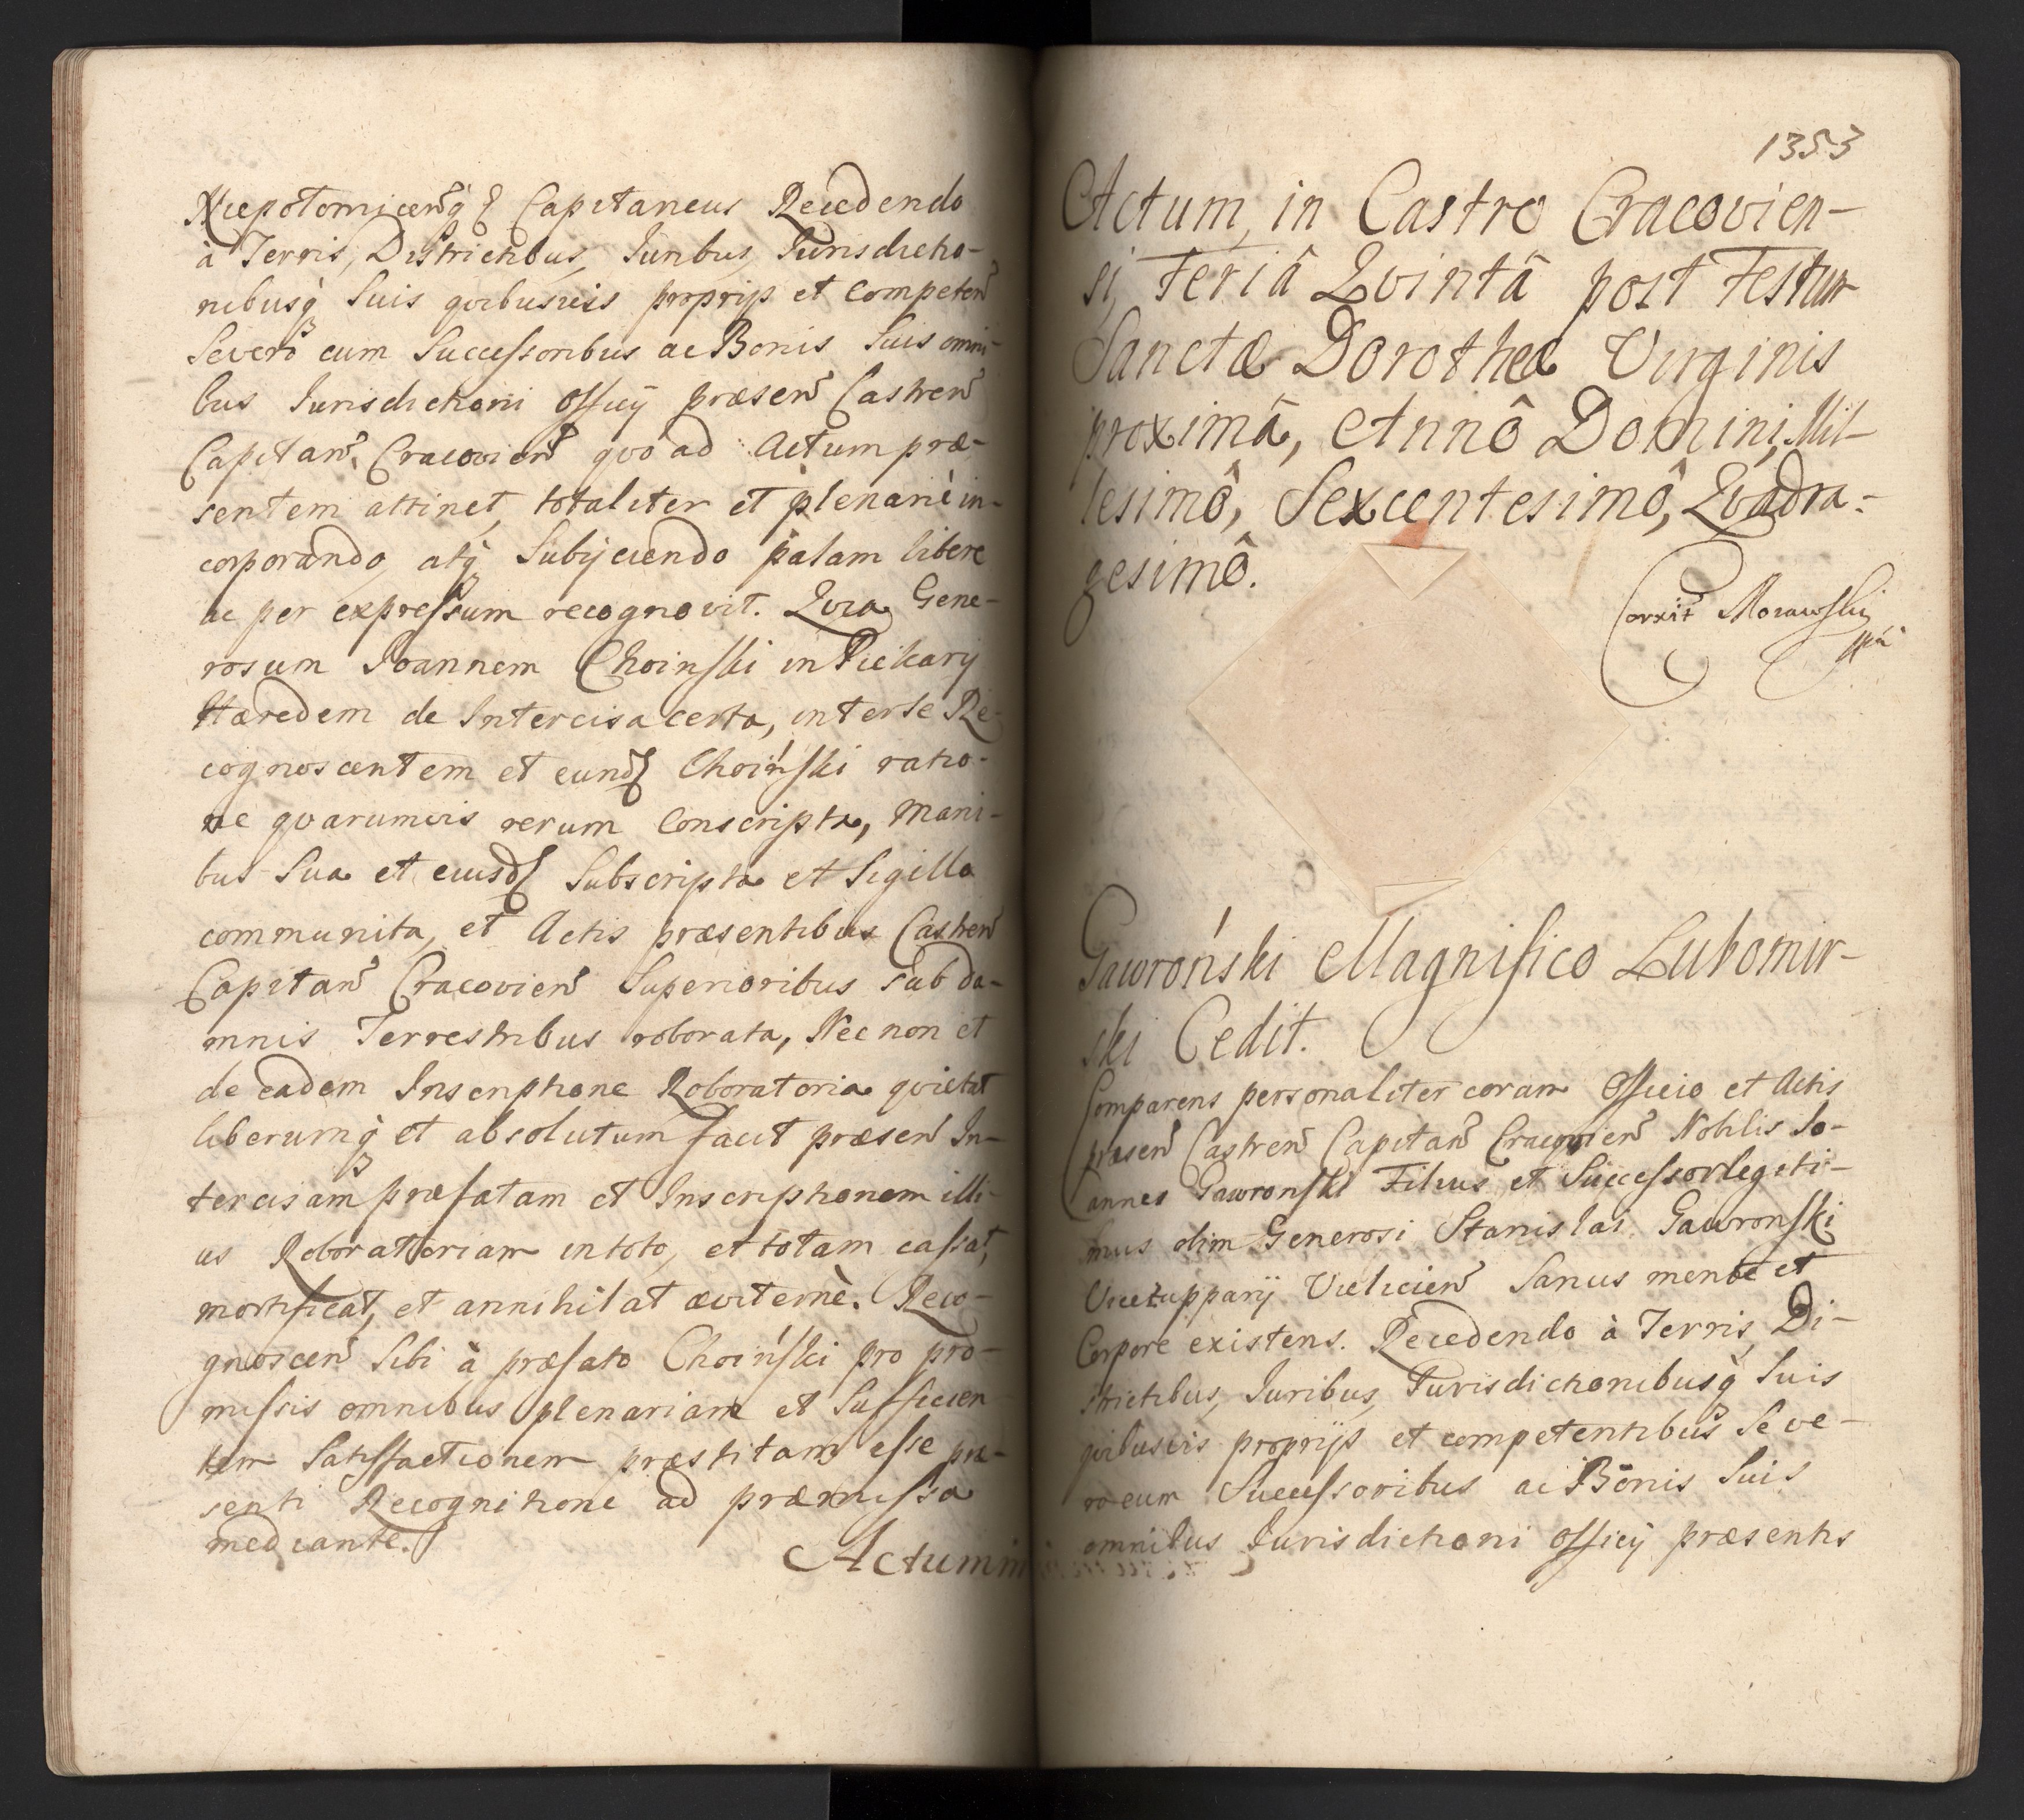 Niepołomicen̄q₃ Capitaneus Recedendo
à Terris, Districtibus, Iuribus, Iurisdictio-
nibusq₃ Suis quibusvis proprijs et competen̄
Severo cum Successoribus ac Bonis Suis omni-
bus Iurisdictioni Officij præsen̄ Castren̄
Capitan̄ Cracovien̄ quo ad Actum præ-
sentem attinet, totaliter et plenariè in-
corporando, atq₃ Subijciendo palam libere
ac per expressum recognovit. Quia Gene-
rosum Ioannem Choinski in Piekary
Hæredem de Intercisa certa, inter se Re-
cognoscentem et eund Choiński ratio-
ne quarumvis rerum Conscripta, Mani-
bus Sua et eiusd Subscripta et Sigillo
communita, et Actis præsentibus Castren̄
Capitan̄ Cracovien̄ Superioribus sub da-
mnis Terrestribus roborata, Nec non et
de eadem Inscriptione Roboratoria quietat
liberumq₃ et absolutum facit præsen̄ In-
tercisam præfatam et Inscriptionem illi-
us Roboratoriam in toto, et totam cassat,
mortificat, et annihilat æviternè. Reco-
gnoscen̄ Sibi à præfato Choiński pro præ-
missis omnibus plenariam et Sufficien-
tem Satisfactionem præstitam esse præ-
senti Recognitione ad præmissa
mediante.
Actum in
1353
Actum, in Castro Cracovien-
si, Feriâ Quintâ post Festum
Sanctæ Dorotheæ Virginis
proximâ, Annô Domini, Mil-
lesimô, Sexcentesimô, Quadra-
gesimô.
Corrxit Morawski
mp
Gawroński Magnifico Lubomir-
ski Cedit.
Comparens personaliter coram Officio et Actis
præsen̄ Castren̄ Capitan̄ Cracovien̄ Nobilis Io-
annes Gawronski Filius et Successor legiti-
mus olim Generosi Stanislai Gawronski
Vicezupparij Vielicien̄ Sanus mente et
Corpore existens. Recedendo à Terris, Di-
strictibus, Iuribus, Iurisdictionibusq₃ Suis
quibusvis proprijs et competentibus Seve-
ro cum Successoribus ac Bonis Suis
omnibus Iurisdictioni Officij præsentis